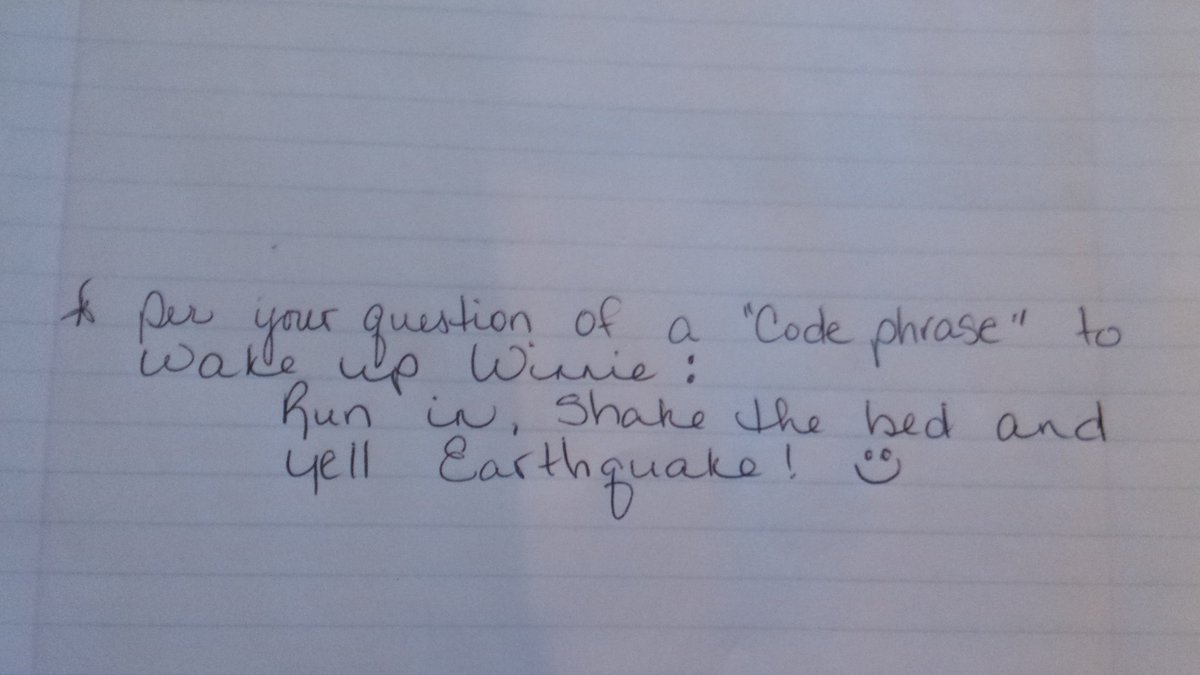 * Per your question of a "Code phrase" to
wake up Winnie:
Run in, Shake the bed and
yell Earthquake! ☺